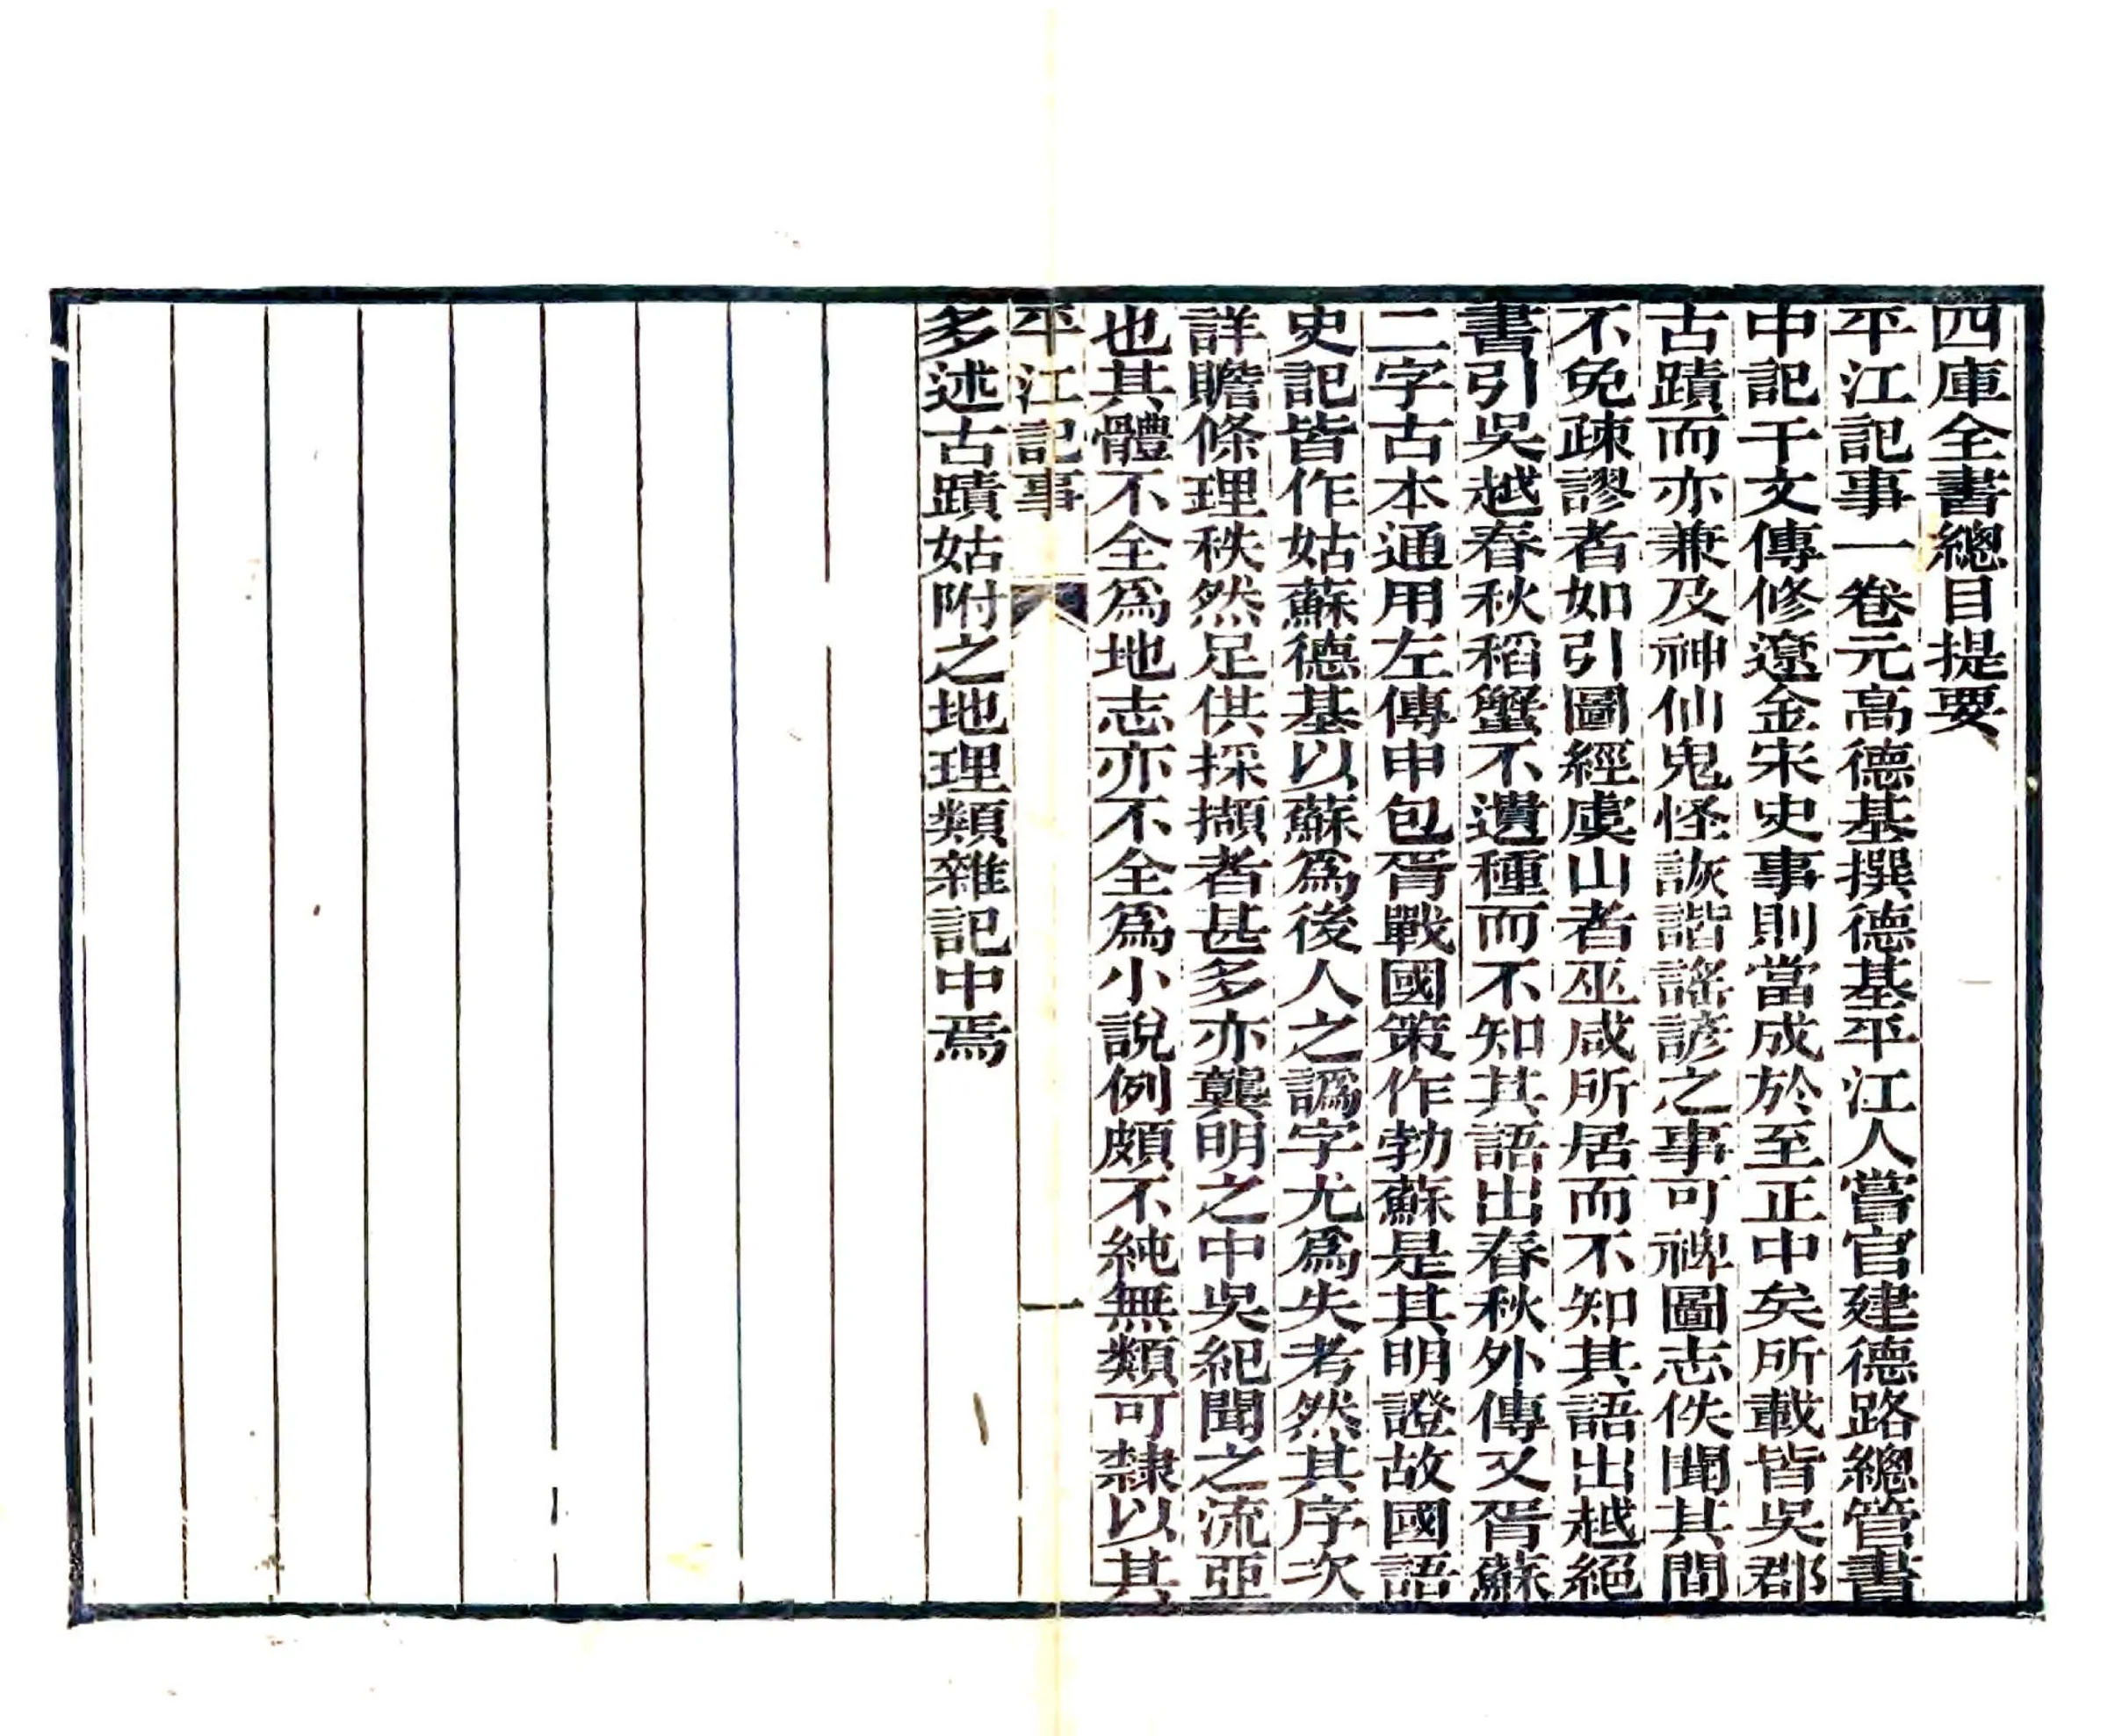 四庫全書總目提要
平江記事一卷元高德基撰德基平江人嘗官建德路總管書
中記干文傳修遼金宋史事則當成於至正中矣所載皆吳郡
古蹟而亦兼及神仙鬼怪詼諧謠諺之事可裨圖志佚聞其間
不免疎謬者如引圖經虞山者巫咸所居而不知其語出越絕
書引吳越春秋稻蟹不遺種而不知其語出春秋外傳又胥蘇
二字古本通用左傳申包胥戰國策作勃蘇是其明證故國語
史記皆作姑蘇德基以蘇爲後人之譌字尤爲失考然其序次
詳贍條理秩然足供採擷者甚多亦龔明之中吳紀聞之流亞
也其體不全爲地志亦不全爲小說例頗不純無類可隸以其
平江記事 一
多述古蹟姑附之地理類雜記中焉